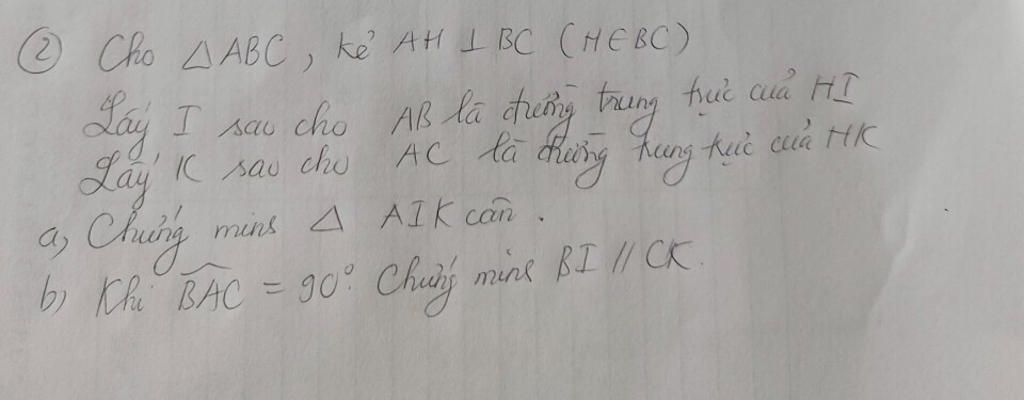 ② Cho △ABC, kẻ AH ⊥ BC (H∈BC)
Lấy I sao cho AB là đường trung trực của HI
Lấy K sao cho AC là đường trung trực của HK
a, Chứng minh △ AIK cân.
b) Khi \widehat{BAC} = 90°. Chứng minh BI // CK.